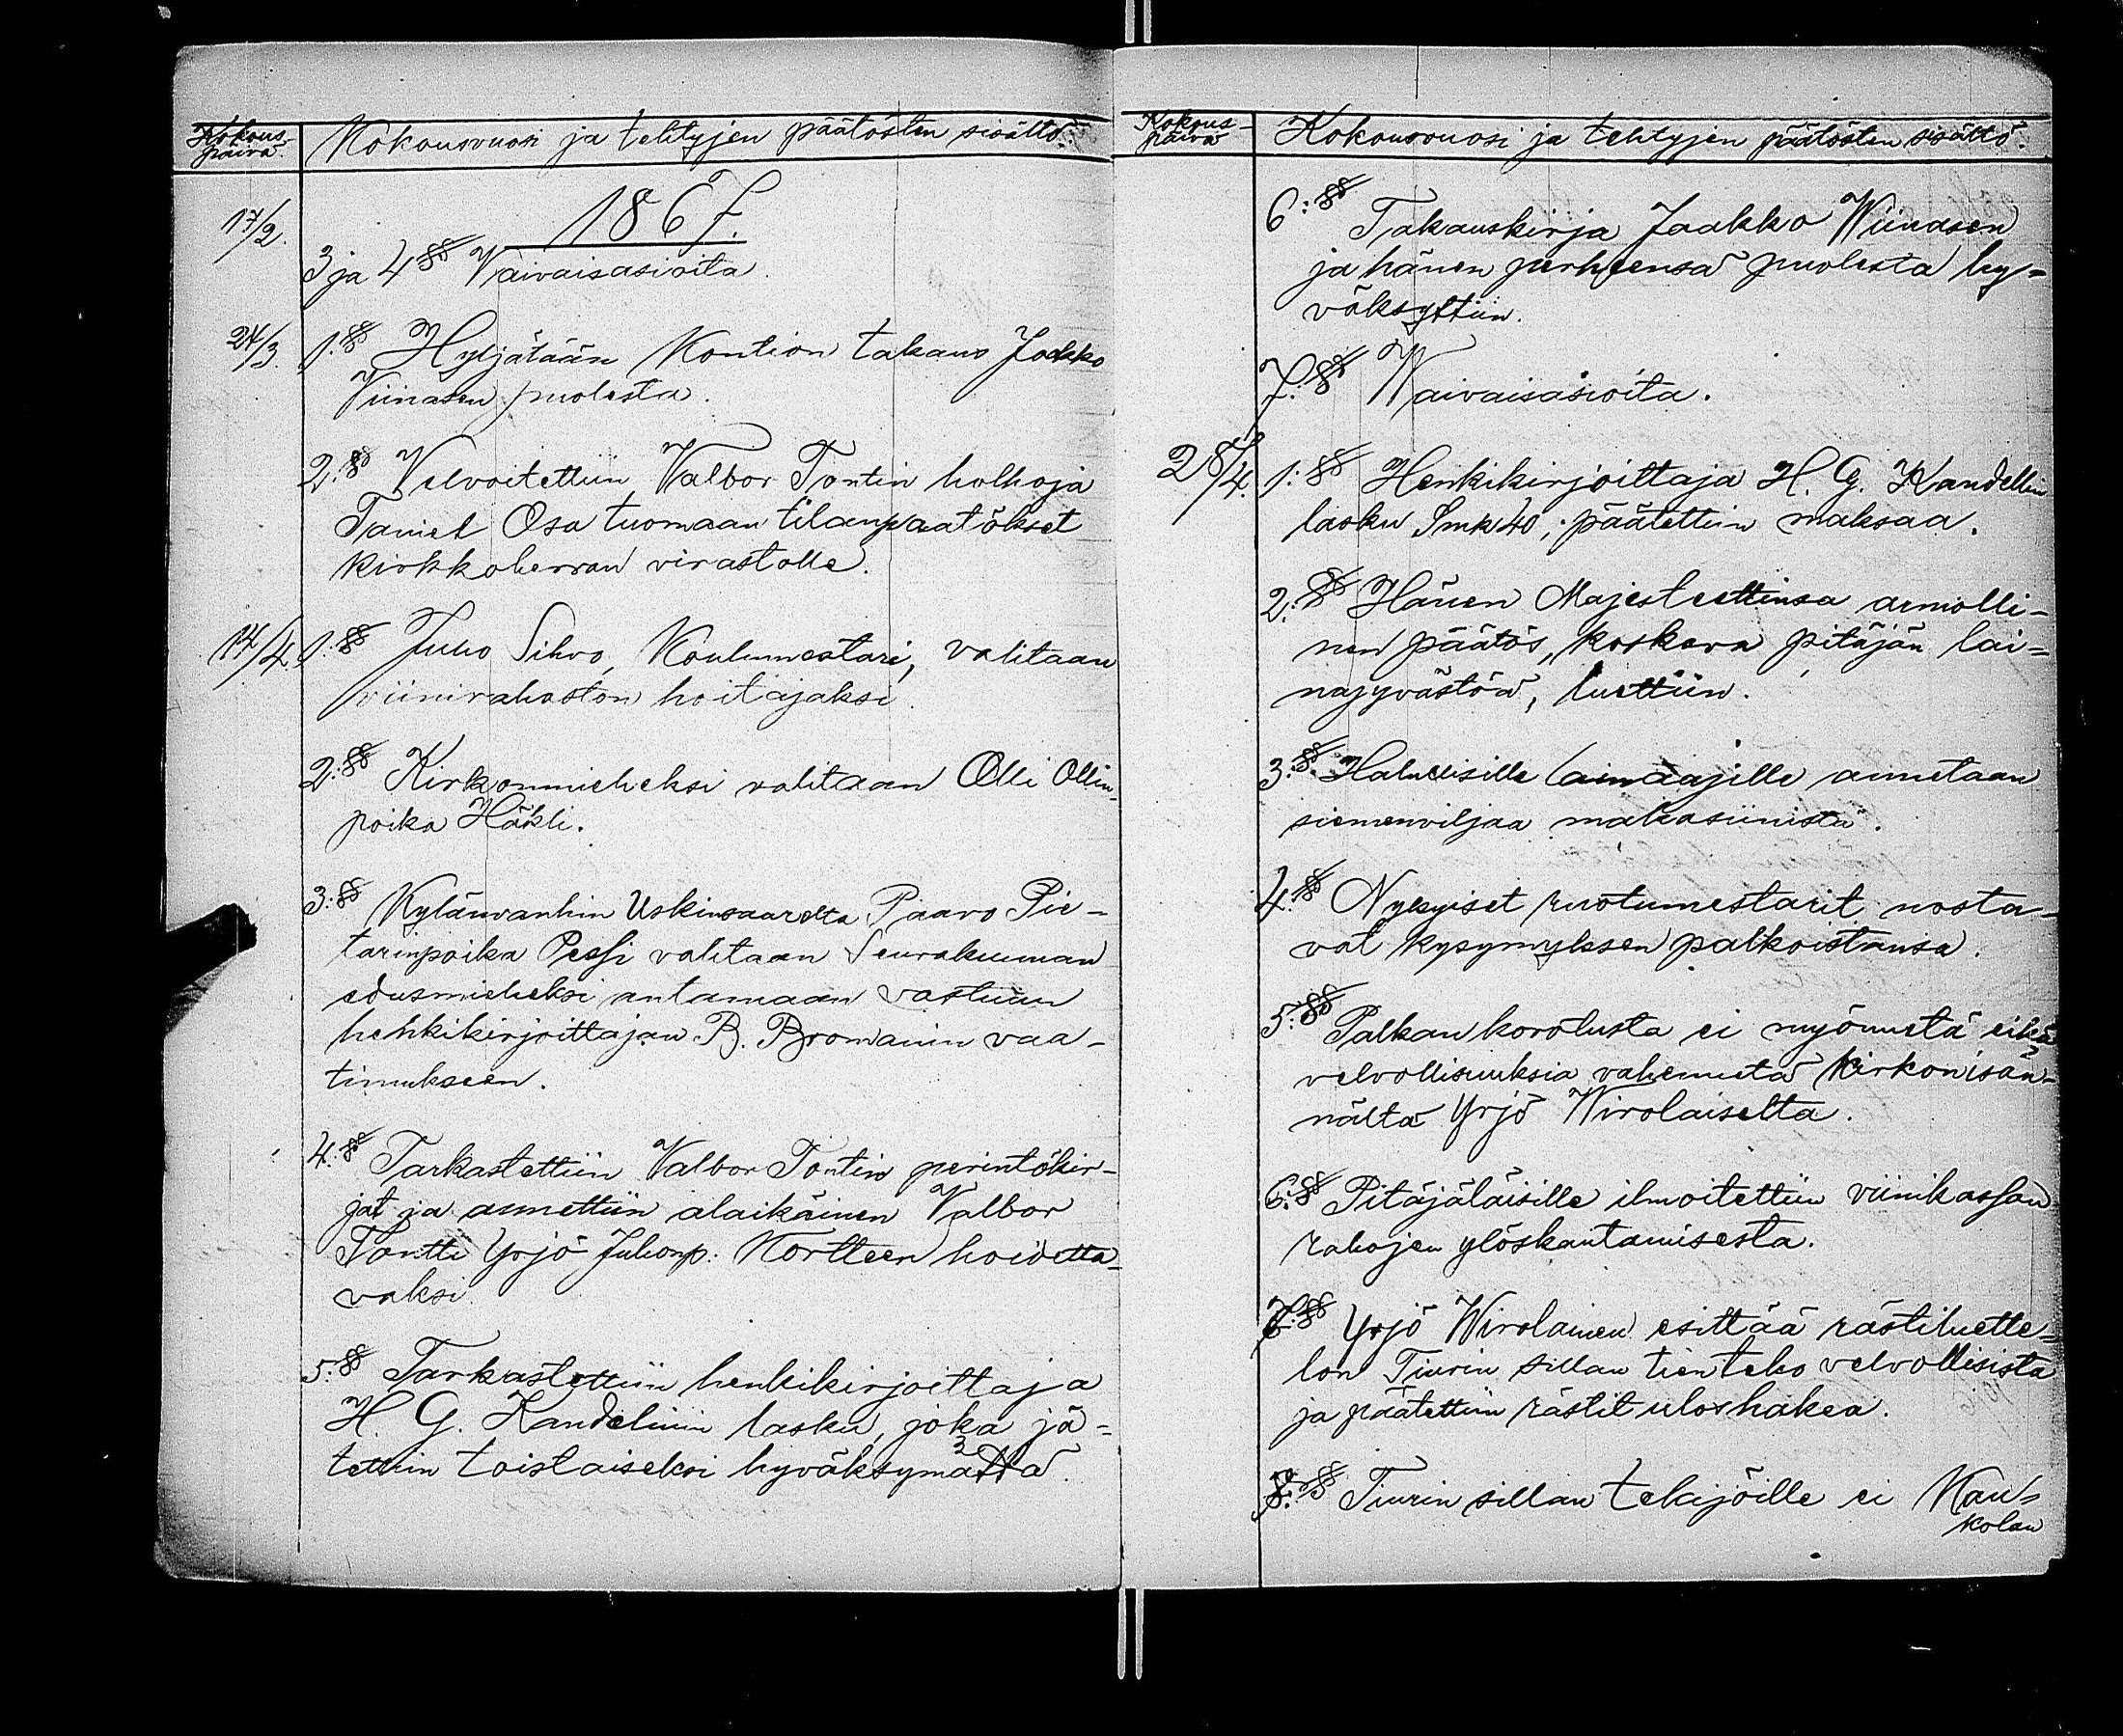 Kokous-
päivä.
Kokousvuosi ja tehtyjen päätösten sisältö:
1867.
17/2.
3 ja 4 §§ Vaivaisasioita.
24/3.
1.§ Hyljätään Kontion takaus Jaakko
Viinasen puolesta.
2.§ Velvoitettiin Valbor Tontin holhoja
Taniel Osa tuomaan tilanpaatökset
kirkkoherran virastolle.
14/4.
1:§ Juho Sihvo, Koulumestari, valitaan
viinirahaston hoitajaksi.
2:§ Kirkonmieheksi valitaan Olli Ollin-
poika Häkli.
3:§ Kylänvanhin Uskinsaarelta Paavo Pie-
tarinpoika Pessi valitaan Seurakunnan
edusmieheksi antamaan vastuun
henkikirjoittajan B. Bromanin vaa-
timukseen.
4:§ Tarkastettiin Valbor Tontin perintökir-
jat ja annettiin alaikäinen Valbor
Tontti Yrjö Juhonp: Kortteen hoidetta-
vaksi.
5:§ Tarkastettiin henkikirjoittaja
H. G. Kandelinin lasku, joka jä-
tettiin toistaiseksi hyväksymättä.
Kokous-
päivä
Kokousvuosi ja tehtyjen päätösten sisältö.
6:§ Takauskirja Jaakko Wiinasen
ja hänen perheensä puolesta hy-
väksyttiin.
7:§ Waivaisasioita.
28/4.
1:§ Henkikirjoittaja H. G. Kandellin
lasku Smk 40,- päätettiin maksaa.
2:§ Hänen Majesteettinsa armolli-
nen päätös, koskeva pitäjän lai-
najyvästöä, luettiin.
3:§ Halullisille lainaajille annetaan
siemenviljaa makasiinista.
4:§ Nykyiset ruotumestarit nosta-
vat kysymyksen palkoistansa.
5:§ Palkan korotusta ei myönnetä eikä
velvollisuuksia vähennetä kirkonisän-
nältä Yrjö Wirolaiselta.
6:§ Pitäjäläisille ilmoitettiin viinikassan
rahojen ylöskantamisesta.
7:§ Yrjö Wirolainen esittää rästiluette-
lon Tiurin sillan tienteko velvollisista
ja päätettiin rästit uloshakea.
8:§ Tiurin sillan tekijöille ei Kau-
kolan